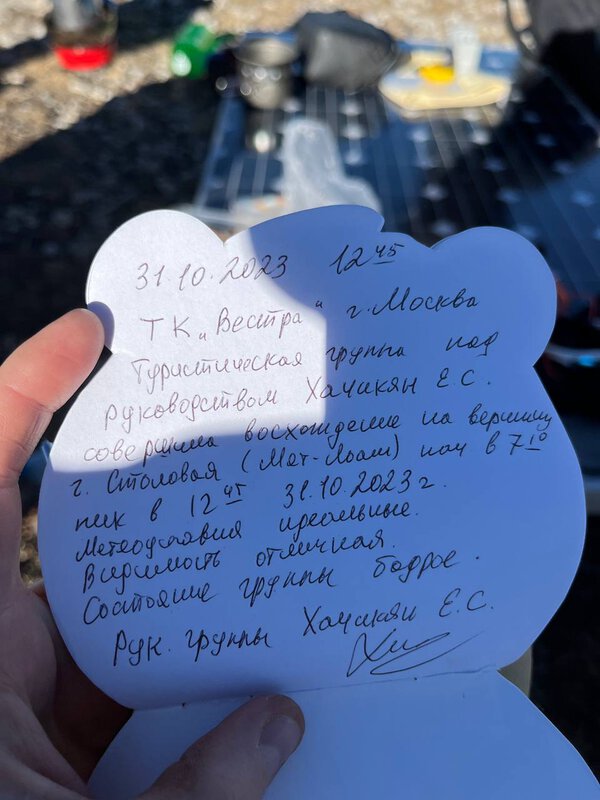 31.10.2023 12 45
ТК „Вестра" г. Москва
Туристическая группа под
руководством Хачикян Е.С.
совершила восхождение на вершину
г. Столовая (Мат-Лоам) нач в 7 10
пик в 12 45 31.10.2023 г.
Метеоусловия идеальные.
Видимость отличная.
Состояние группы бодрое.
Рук. группы Хачикян Е.С.